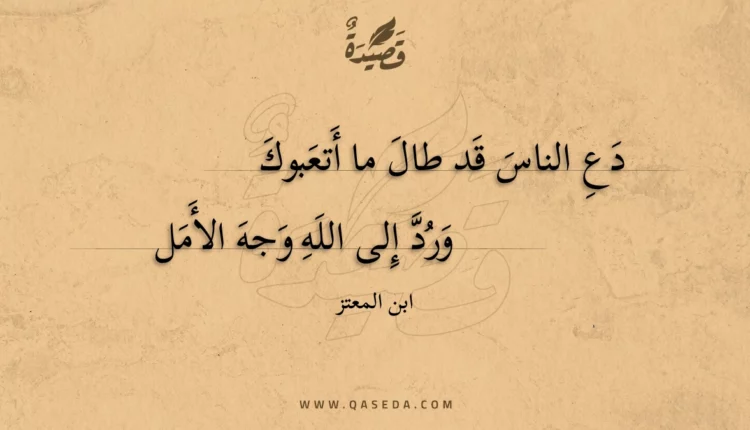 قَصِيدَةٌ
دَعِ الناسَ قَد طالَ ما أَتعَبوكَ
وَرُدَّ إِلى اللَهِ وَجهَ الأَمَل
ابن المعتز
WWW.QASEDA.COM